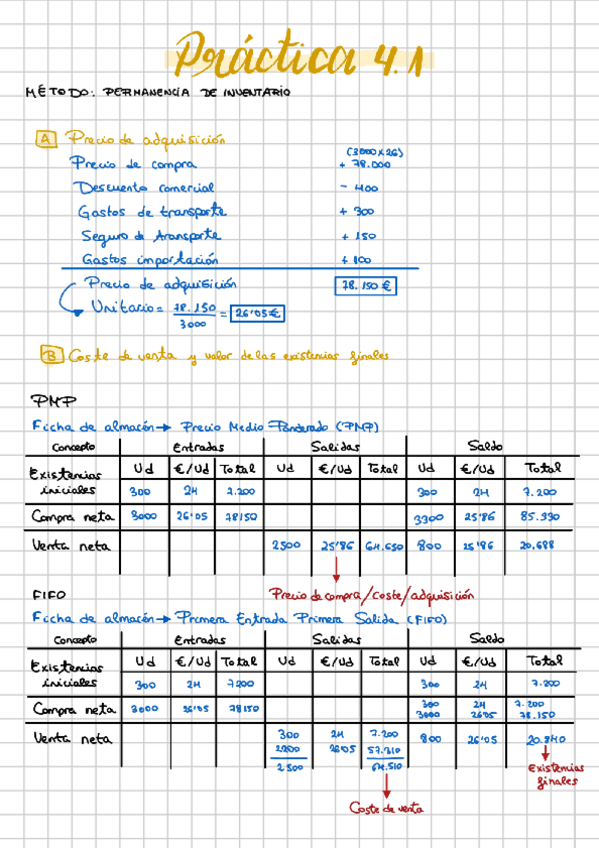 Práctica 4.1
MÉTODO: PERMANENCIA DE INVENTARIO
A Precio de adquisición
(3000x26)
Precio de compra + 78.000
Descuento comercial - 400
Gastos de transporte + 300
Seguro de transporte + 150
Gastos importación + 100
Precio de adquisición 78.150€
Unitario = 78.150 / 3000 = 26'05€
B Coste de venta y valor de las existencias finales
PMP
Ficha de almacén → Precio Medio Ponderado (PMP)
Concepto Entradas Salidas Saldo
Existencias iniciales Ud €/Ud Total Ud €/Ud Total Ud €/Ud Total
300 24 7.200 300 24 7.200
Compra neta 3000 26'05 78150 3300 25'86 85.330
Venta neta 2500 25'86 64.650 800 25'86 20.688
Precio de compra/coste/adquisición
FIFO
Ficha de almacén → Primera Entrada Primera Salida (FIFO)
Concepto Entradas Salidas Saldo
Existencias iniciales Ud €/Ud Total Ud €/Ud Total Ud €/Ud Total
300 24 7200 300 24 7.200
Compra neta 3000 26'05 78150 300 24 7.200
3000 26'05 78.150
Venta neta 300 24 7.200 800 26'05 20.840
2200 26'05 57.310
2500 64.510
Existencias
finales
Coste de venta